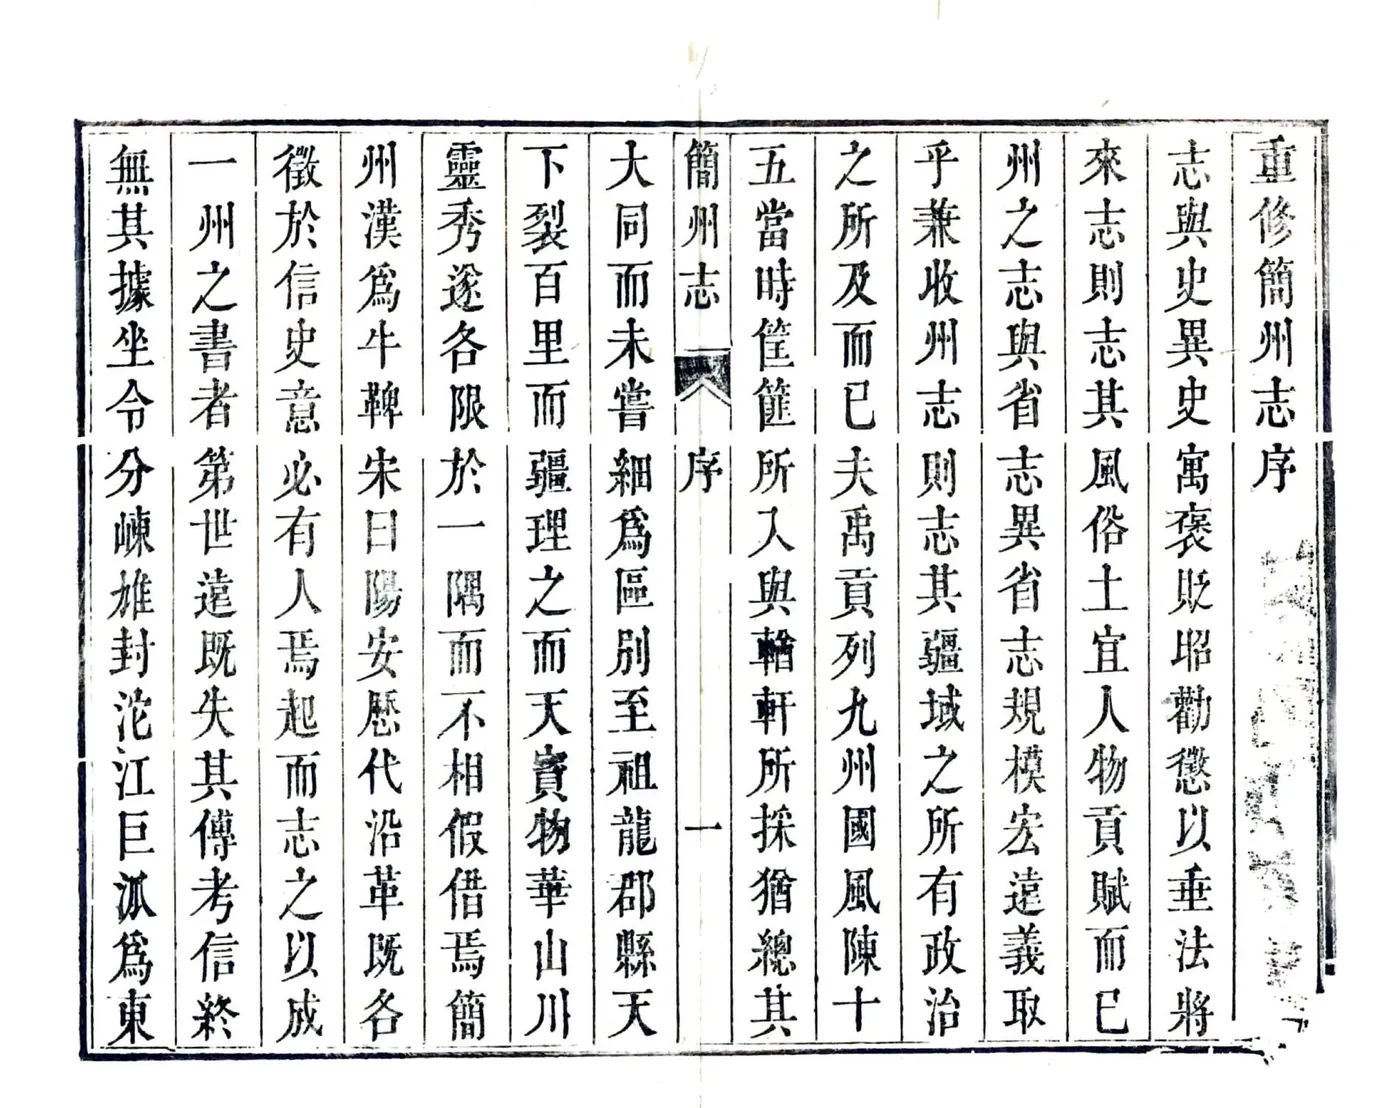 重修簡州志序
志與史異史寓褒貶昭勸懲以垂法將
來志則志其風俗土宜人物貢賦而已
州之志與省志異省志規模宏遠義取
乎兼收州志則志其疆域之所有政治
之所及而已夫禹貢列九州國風陳十
五當時筐篚所入與輶軒所採猶總其
簡州志 序 一
大同而未嘗細爲區別至祖龍郡縣天
下裂百里而疆理之而天寶物華山川
靈秀遂各限於一隅而不相假借焉簡
州漢爲牛鞞宋曰陽安歷代沿革既各
徵於信史意必有人焉起而志之以成
一州之書者第世遠既失其傳考信終
無其據坐令分崠雄封沱江巨派爲東